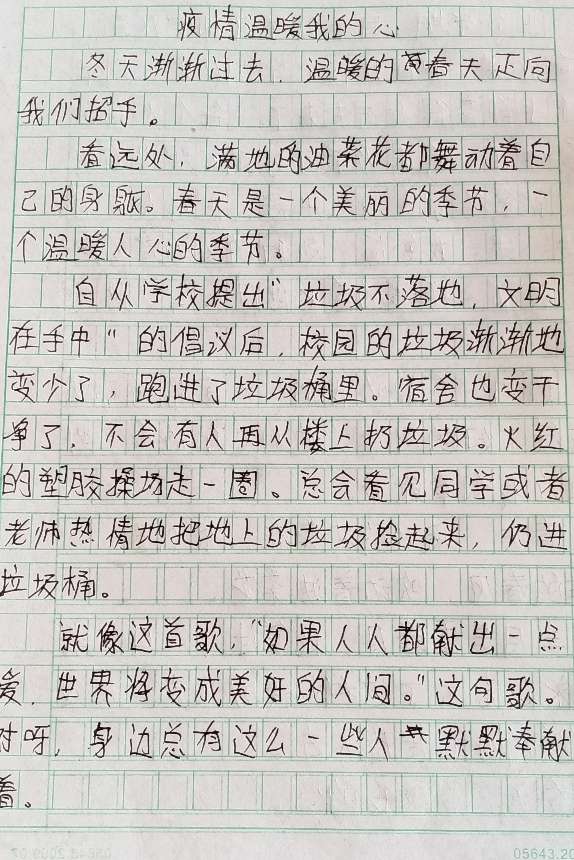 疫情温暖我的心
冬天渐渐过去，温暖的春天正向
我们招手。
看远处，满地的油菜花都舞动着自
己的身躯。春天是一个美丽的季节，一
个温暖人心的季节。
自从学校提出"垃圾不落地，文明
在手中"的倡议后，校园的垃圾渐渐地
变少了，跑进了垃圾桶里。宿舍也变干
净了，不会有人再从楼上扔垃圾。火红
的塑胶操场走一圈。总会看见同学或者
老师热情地把地上的垃圾捡起来，仍进
垃圾桶。
就像这首歌，"如果人人都献出一点
爱，世界将变成美好的人间。"这句歌。
对呀，身边总有这么一些人默默奉献
着。
05643.20